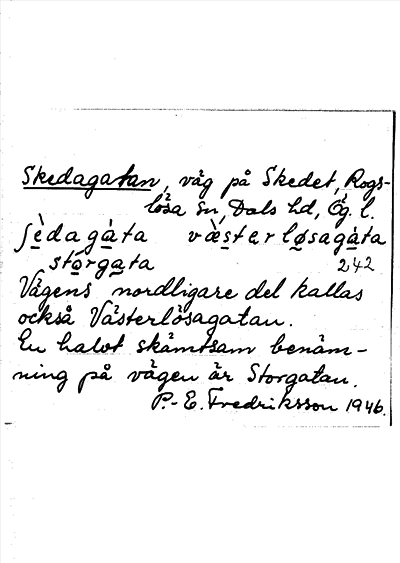 Skedagatan, väg på Skedet, Rogs-
lösa sn, Dals hd, Ög. l.
ʃèdagàta vàsterløsagàta
stórgata 242
Vägens nordligare del kallas
också Västerlösagatan.
En halvt skämtsam benäm-
ning på vägen är Storgatan.
P.-E. Fredriksson 1946.